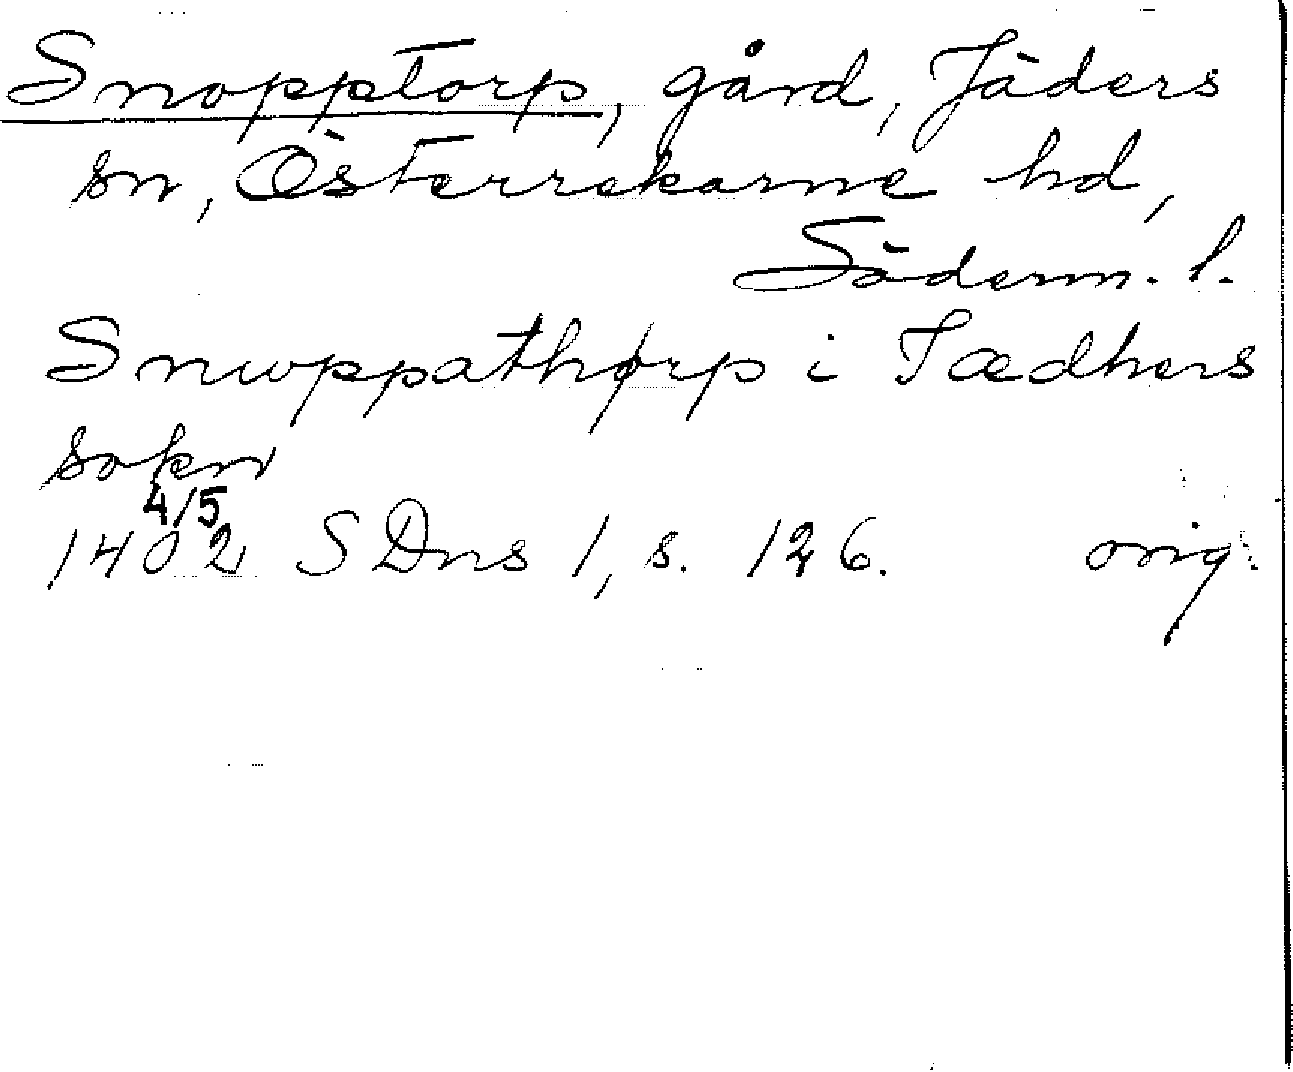 Snopptorp, gård, Jäders
sn, Österrekarne hd,
Söderm. l.
Snuppathørp i Iædhers
sokn
4/5
1402 SDns 1, s. 126. orig.